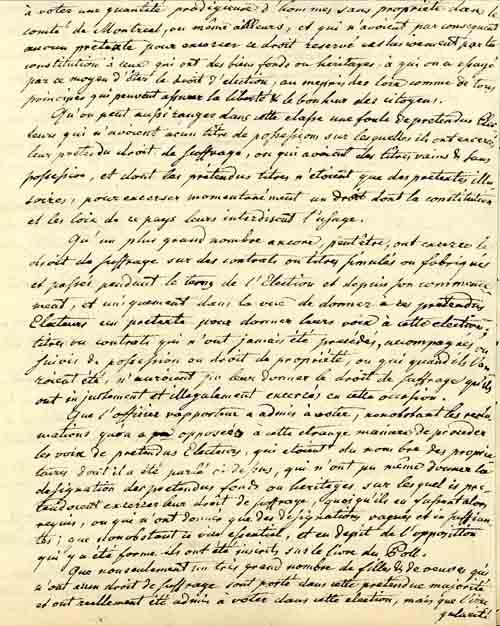 à voter une quantité prodigieuse d'hommes sans propriété dans le
comté de Montreal, ou même ailleurs, et qui n'avoient par consequent
aucun prétexte pour exercer ce droit reservé exclusivement par la
constitution à ceux qui ont des biens fonds ou héritages, à qui on a essayé
par ce moyen d'ôter le droit d'election, au mepris des loix comme de tous
principes qui peuvent assurer la liberté & le bonheur des citoyens.
Qu'on peut aussi ranger dans cette classe une foule de pretendus Elec-
teurs qui n'avoient aucun titre de possessions sur lesquelles ils ont exercé
leur prétendu droit de suffrage, ou qui avoient des titres vains & sans
possession, et dont les prétendus titres n'étoient que des pretextes illu-
soires, pour exercer momentanément un droit dont la constitution
et les loix de ce pays leurs interdisent l'usage.
Qu'un plus grand nombre encore, peut être, ont exercé le
droit de suffrage sur des contrats ou titres simulés ou fabriqués
et passés pendant le temps de l'Election et depuis son commence-
ment, et uniquement dans la vue de donner à ces prétendus
Electeurs un pretexte pour donner leurs voix à cette election;
titres ou contrats qui n'ont jamais été précédés, accompagnés ou
suivis de possession ou droit de propriété, ou qui quand ils l'au-
roient été, n'auroient pu leur donner le droit de suffrage qu'ils
ont injustement et illegalement exercés en cette occasion.
Que l'officier rapporteur a admis à voter, nonobstant les recla-
mations qu'on a opposées à cette etrange maniere de proceder
les voix de prétendus Electeurs, qui etoient du nombre des proprie-
taires dont il a été parlé ci dessus, qui n'ont pu même donner la
designation des pretendus fonds ou heritages sur lesquel is pre-
tendoient exercer leur droit de suffrage, quoi qu'ils en fussent alors
requis, ou qui n'ont donner que des désignations vagues et insuffisan-
tes; que nonobstant ce vice essentiel, et en depit de l'opposition
qui y a été formé ils ont été inscrits sur le livre du Poll.
Que nonseulement un très grand nombre de filles & de veuves qui
n'ont aucun droit de suffrage sont porté dans cette pretendue majorité
et ont reellement été admis à voter dans cette election, mais que l'irre-
gularité